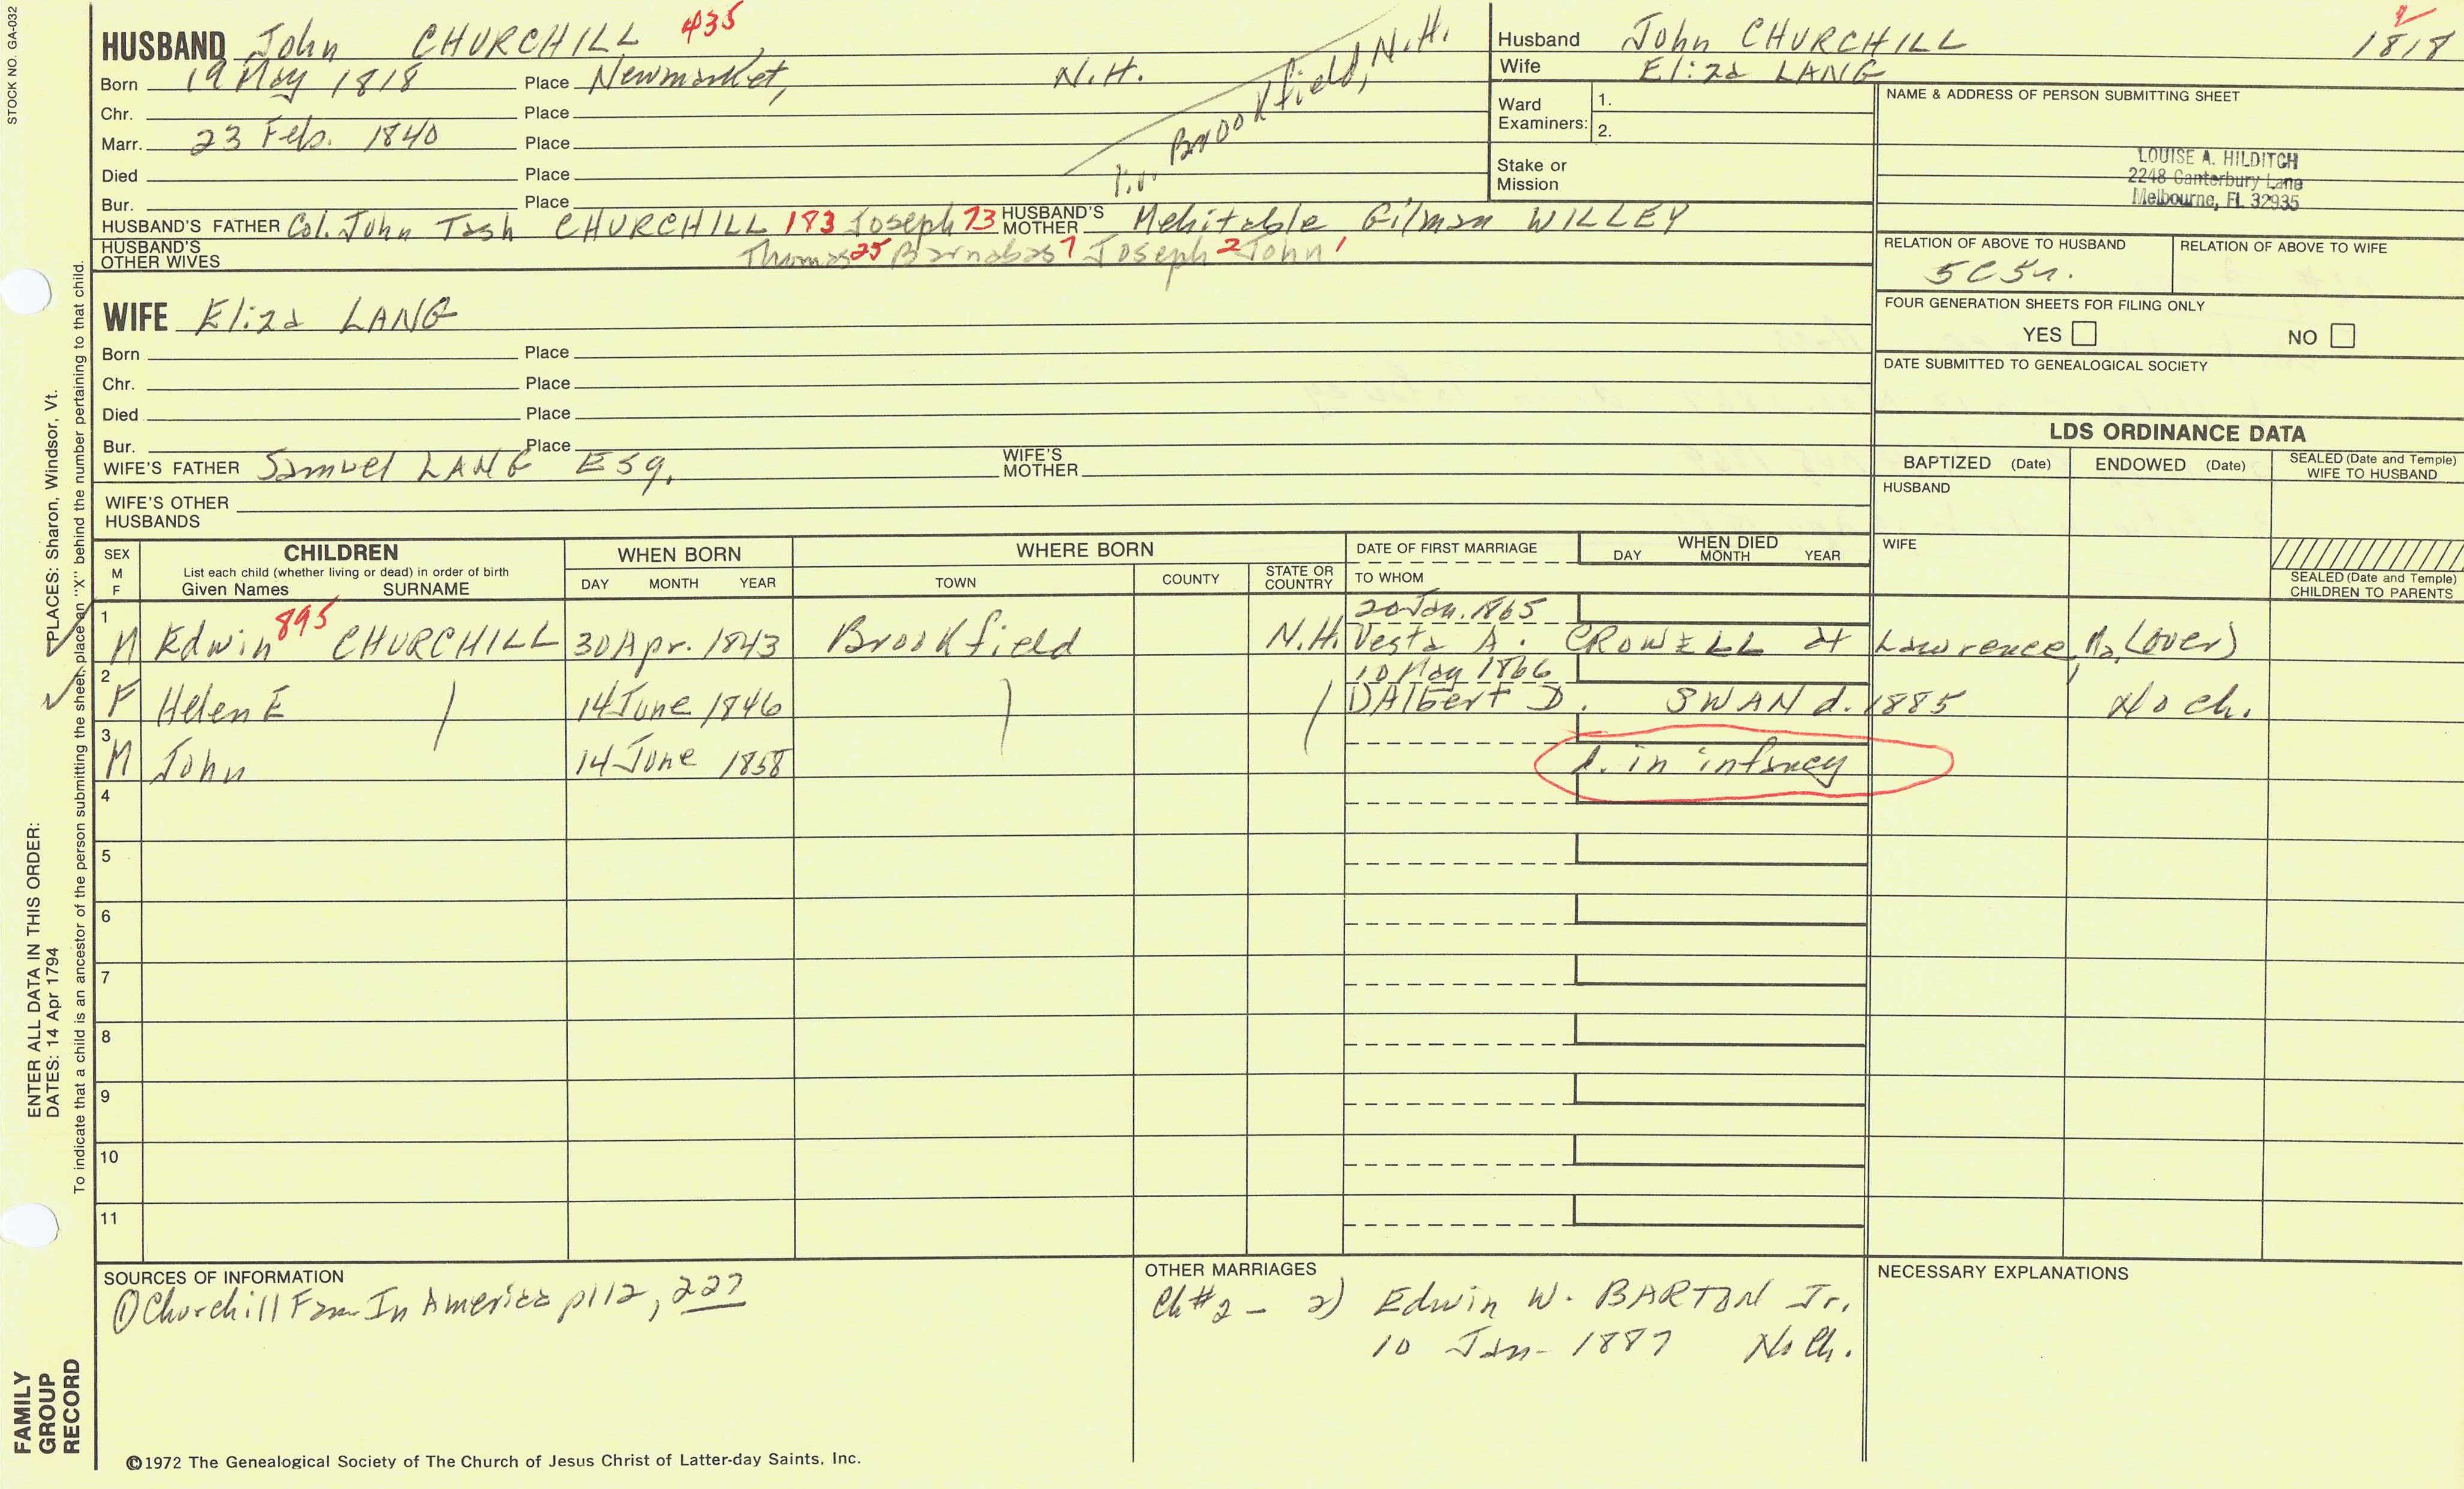 STOCK NO. GA-032
HUSBAND John CHURCHILL 435
Born 19 May 1818 Place Newmarket, N.H.
Chr. Place
Marr. 23 Feb. 1840 Place
Died Place
Bur. Place
Brookfield, N.H.
HUSBAND'S FATHER Col. John Tash CHURCHILL 183 Joseph 73 HUSBAND'S MOTHER Mehitable Gilman WILLEY
HUSBAND'S OTHER WIVES
Thomas 25 Barnabas 7 Joseph 2 John 1
WIFE Eliza LANG
Born Place
Chr. Place
Died Place
Bur. Place
WIFE'S FATHER Samuel LANG Esq. WIFE'S MOTHER
WIFE'S OTHER HUSBANDS
Husband John CHURCHILL 1818
Wife Eliza LANG
Ward Examiners: 1.
2.
Stake or Mission
NAME & ADDRESS OF PERSON SUBMITTING SHEET
LOUISE A. HILDITCH
2248 Canterbury Lane
Melbourne, FL 32935
RELATION OF ABOVE TO HUSBAND RELATION OF ABOVE TO WIFE
5C5r.
FOUR GENERATION SHEETS FOR FILING ONLY
YES NO
DATE SUBMITTED TO GENEALOGICAL SOCIETY
LDS ORDINANCE DATA
BAPTIZED (Date) ENDOWED (Date) SEALED (Date and Temple) WIFE TO HUSBAND
HUSBAND
WIFE
SEALED (Date and Temple) CHILDREN TO PARENTS
SEX M F
CHILDREN
List each child (whether living or dead) in order of birth
Given Names SURNAME
WHEN BORN
DAY MONTH YEAR
WHERE BORN
TOWN COUNTY STATE OR COUNTRY
DATE OF FIRST MARRIAGE
TO WHOM
WHEN DIED
DAY MONTH YEAR
1 20 Jan. 1865
M Edwin 895 CHURCHILL 30 Apr. 1843 Brookfield N.H. Vesta A. CROWELL at Lawrence, Ma (over)
2 10 May 1866
F Helen E 14 June 1846 DAlbert D. SWAN d. 1885 No ch.
3
M John 14 June 1858 d. in infancy
4
5
6
7
8
9
10
11
SOURCES OF INFORMATION
① Churchill Fam In America p112, 227
OTHER MARRIAGES
Ch #2 - 2) Edwin W. BARTON Jr.
10 Jan - 1887 No Ch.
NECESSARY EXPLANATIONS
©1972 The Genealogical Society of The Church of Jesus Christ of Latter-day Saints, Inc.
FAMILY GROUP RECORD
ENTER ALL DATA IN THIS ORDER:
DATES: 14 Apr 1794 PLACES: Sharon, Windsor, Vt.
To indicate that a child is an ancestor of the person submitting the sheet, place an "X" behind the number pertaining to that child.